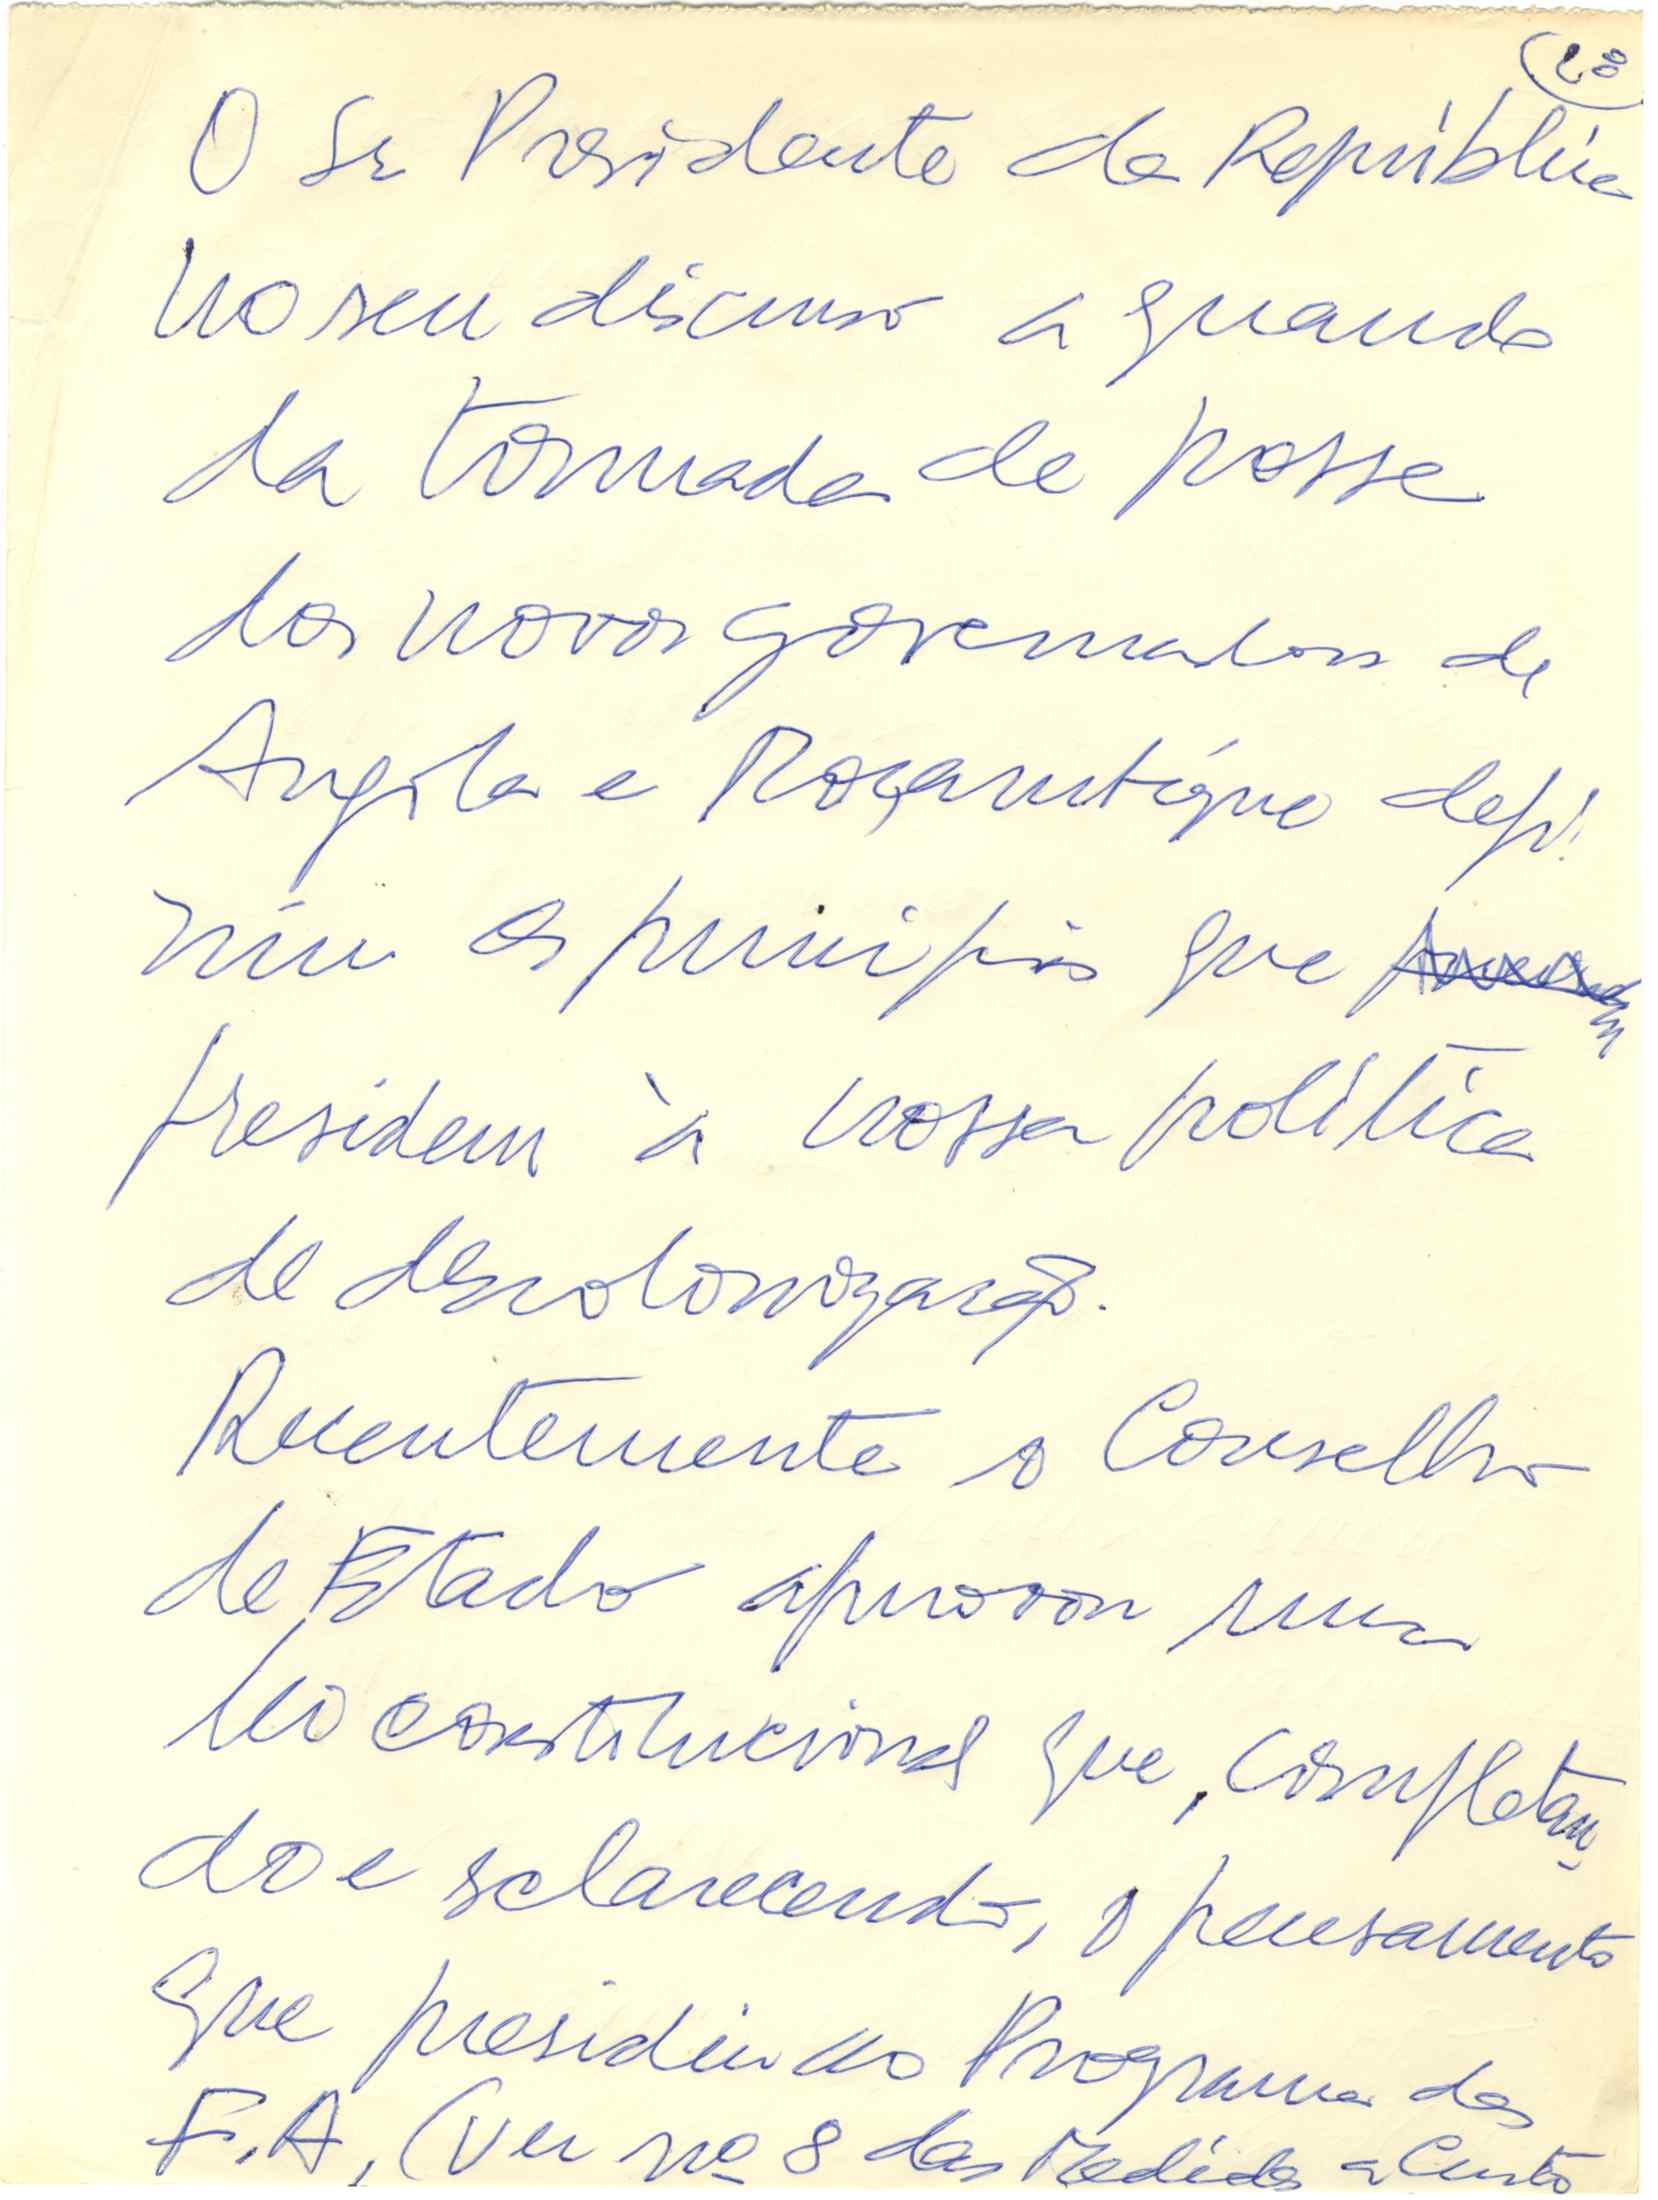 O Sr Presidente da República
no seu discurso a quando
da tomada de posse
dos novos governadores de
Angola e Moçambique defi
niu os principios que
presidem à nossa política
de descolonização.
Recentemente o Conselho
de Estado aprovou uma
lei constitucional que, completan
do e esclarecendo, o pensamento
que presidiu ao Programa das
F.A, (Ver nº 8 das Medidas a Curto